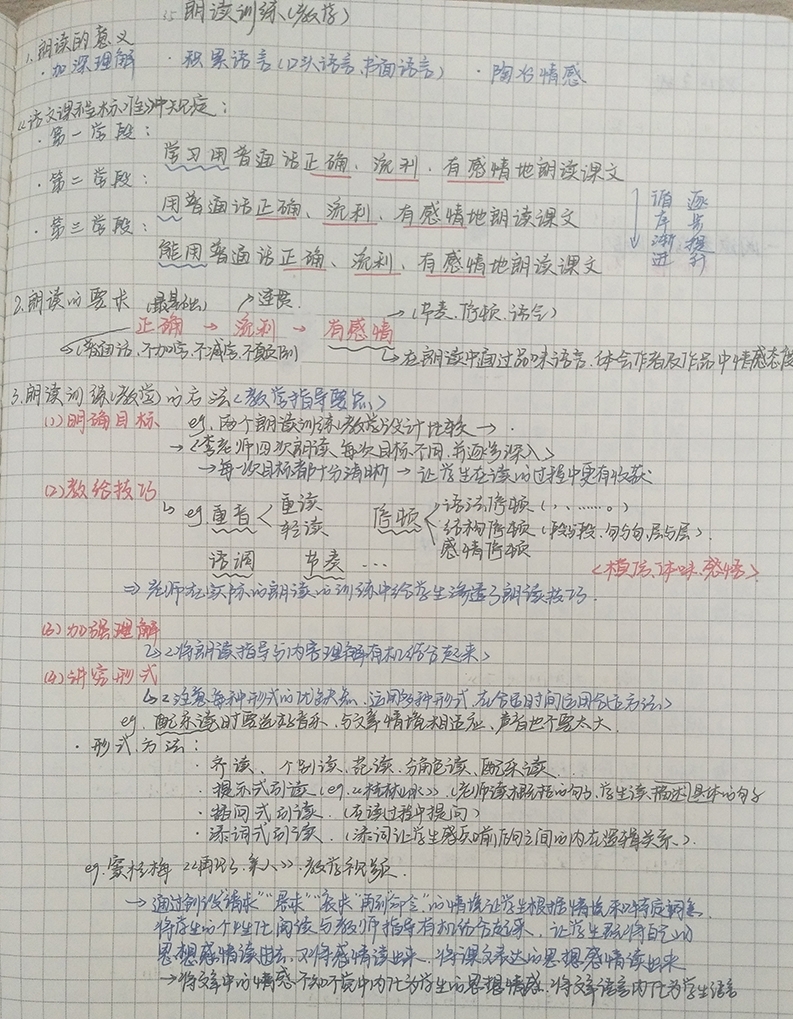 朗读训练(教学)
1.朗读的意义
·加深理解 ·积累语言(口头语言、书面语言) ·陶冶情感
《语文课程标准》中规定:
·第一学段:
学习用普通话正确、流利、有感情地朗读课文
·第二学段:
用普通话正确、流利、有感情地朗读课文
·第三学段:
能用普通话正确、流利、有感情地朗读课文
循序渐进
逐步提升
2.朗读的要求 (最基础) ↗连贯.
正确 → 流利 → 有感情 → (节奏、停顿、语气)
↳(普通话、不加字、不减字、不颠倒
↳在朗读中通过品味语言、体会作者及作品中情感态度
3.朗读训练(教学)的方法<教学指导要点>
(1)明确目标 eg.两个朗读训练(教学)设计比较→.
→<李老师四次朗读、每次目标不同,并逐步深入>
→每一次目标都十分清晰→让学生在读的过程中更有收获
(2)教给技巧
↳ eg.重音<重读 轻读 停顿<语法停顿(、,……。) 结构停顿(段与段、句与句、层与层). 感情停顿
语调 节奏 …
<模仿、体味、感悟>
⇒老师在实际的朗读的训练中给学生渗透了朗读技巧.
(3)加强理解
↳<将朗读指导与内容理解有机结合起来>
(4)讲究形式
↳<注意每种形式的优缺点、运用多种形式、在合适时间运用合适方法>
eg.配乐读时要选好音乐、与文章情境相适应、声音也不要太大.
·形式、方法:
·齐读、个别读、范读、分角色读、配乐读…
·提示式引读(eg.《桂林山水》)(老师读概括的句子、学生读描述具体的句子
·插问式引读.(在读过程中提问)
·添词式引读.(添词让学生感知前后句之间的内在逻辑关系.)
eg.窦桂梅《再见了,亲人》教学视频.
→通过创设"请求""恳求""哀求""再到命令"的情境让学生根据情境采取特定语气.
将学生的个性化阅读与教师指导有机结合起来、让学生能将自己的
思想感情读进去、又将感情读出来、将课文表达的思想感情读出来
→将文章中的情感不知不觉中内化为学生的思想情感、将文章语言内化为学生语言